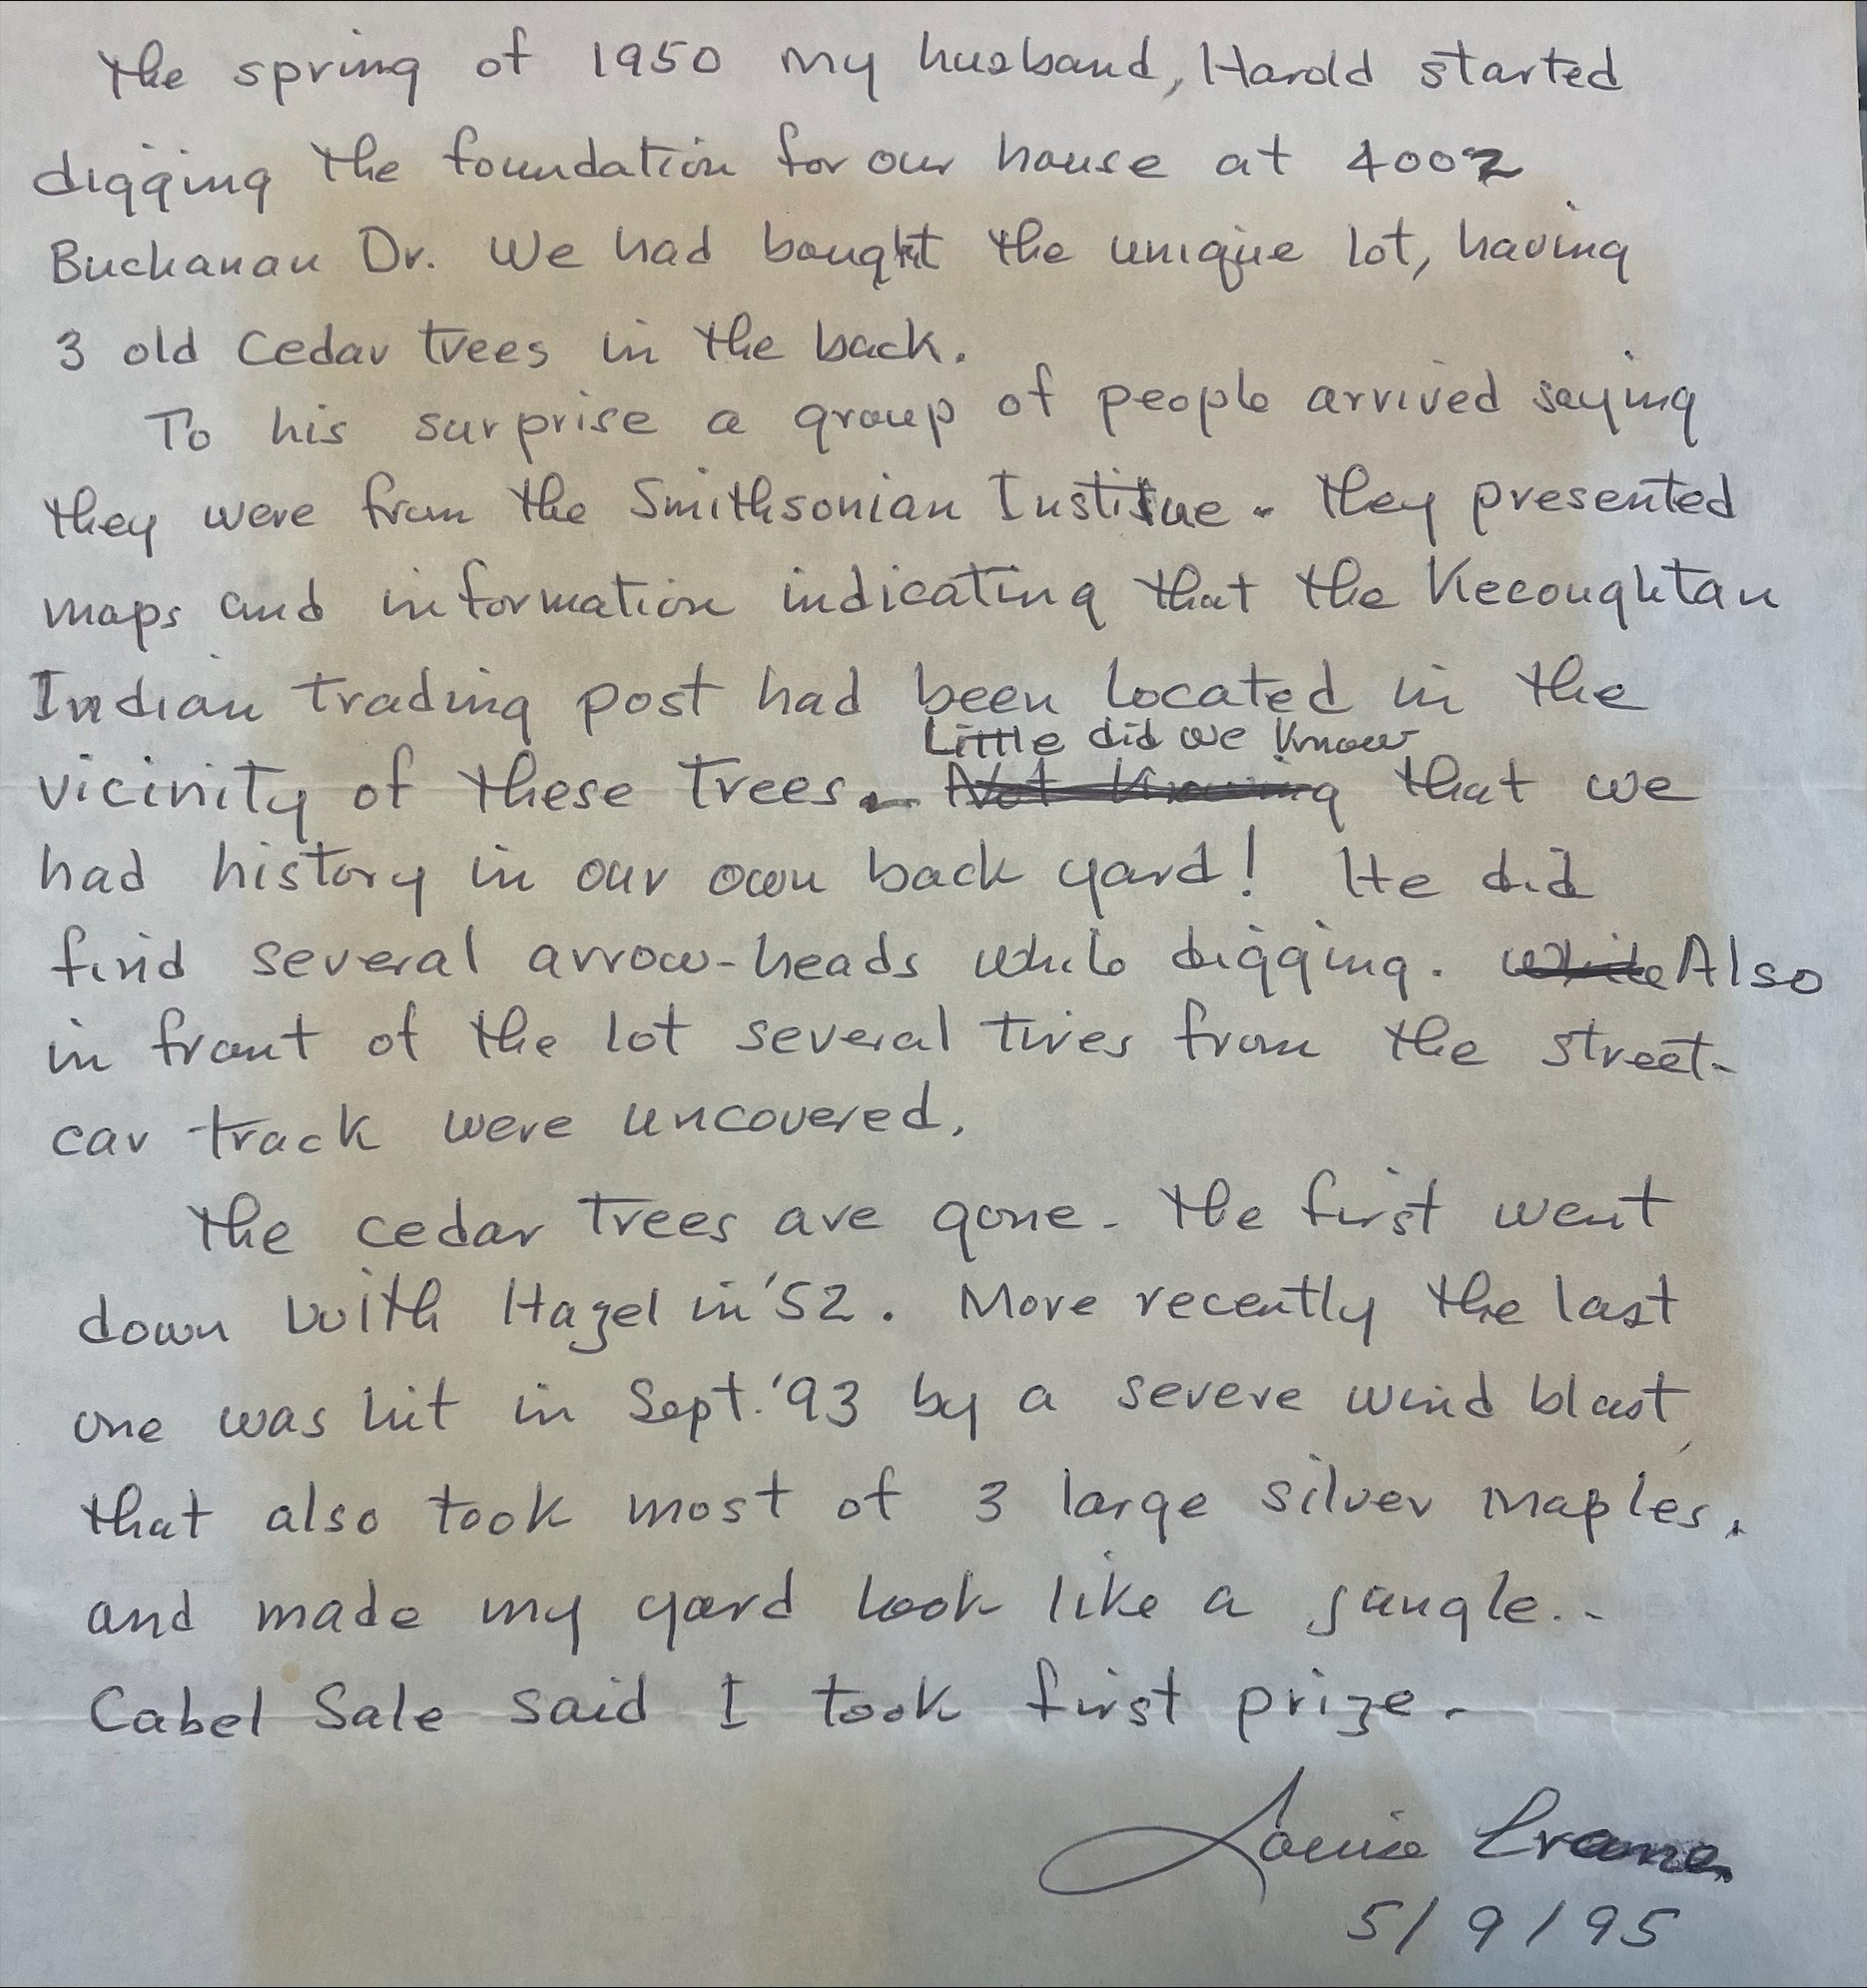 The spring of 1950 my husband, Harold started
digging the foundation for our house at 4002
Buchanan Dr. We had bought the unique lot, having
3 old cedar trees in the back.
To his surprise a group of people arrived saying
they were from the Smithsonian Institue. They presented
maps and information indicating that the Kecoughtan
Indian trading post had been located in the
Little did we know
vicinity of these trees. Not Knowing that we
had history in our own back yard! He did
find several arrow-heads while digging. While Also
in front of the lot several tires from the street-
car track were uncovered.
The cedar trees are gone. The first went
down with Hazel in '52. More recently the last
one was hit in Sept. '93 by a severe wind blast,
that also took most of 3 large silver maples.
and made my yard look like a jungle..
Cabel Sale said I took first prize.
Louise Crane
5/9/95